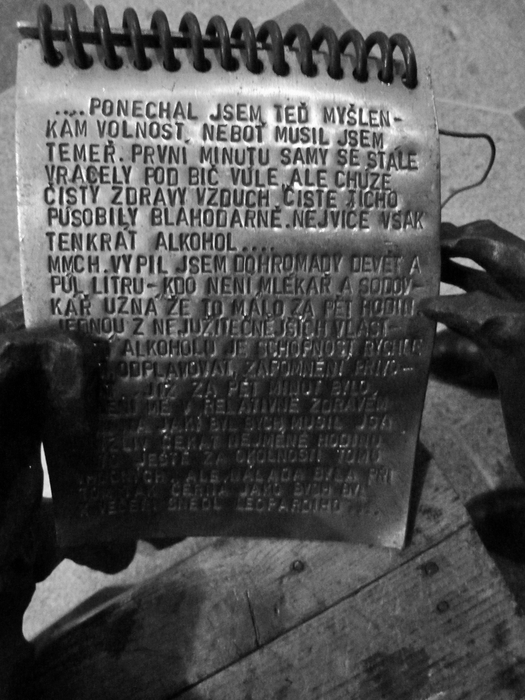 ....PONECHAL JSEM TEĎ MYŠLEN-
KÁM VOLNOST, NEBOŤ MUSIL JSEM
TÉMĚŘ. PRVNÍ MINUTU SAMY SE STÁLE
VRACELY POD BIČ VŮLE, ALE CHŮZE
ČISTÝ ZDRAVÝ VZDUCH, ČISTÉ TICHO
PŮSOBILY BLAHODÁRNĚ. NEJVÍCE VŠAK
TENKRÁT ALKOHOL....
MMCH. VYPIL JSEM DOHROMADY DEVĚT A
PŮL LITRU - KDO NENÍ MLÉKAŘ A SODOV-
KAŘ UZNÁ ŽE TO MÁLO ZA PĚT HODIN.
JEDNOU Z NEJUŽITEČNĚJŠÍCH VLAST-
ALKOHOLU JE SCHOPNOST RYCHLE
ODPLAVOVAT, ZAPOMNĚNÝ
JIŽ ZA PĚT MINUT BYLO
V RELATIVNĚ ZDRAVÉM
A JAKÝ BYL BYCH MUSIL
ČEKAT NEJMÉNĚ HODINU
JEŠTĚ ZA OKOLNOSTI TOMU
ALE NÁLADA BYLA PŘI
ČERNÁ JAKO BYCH BYL
K VEČEŘI SNĚDL LEOPARDÍHO